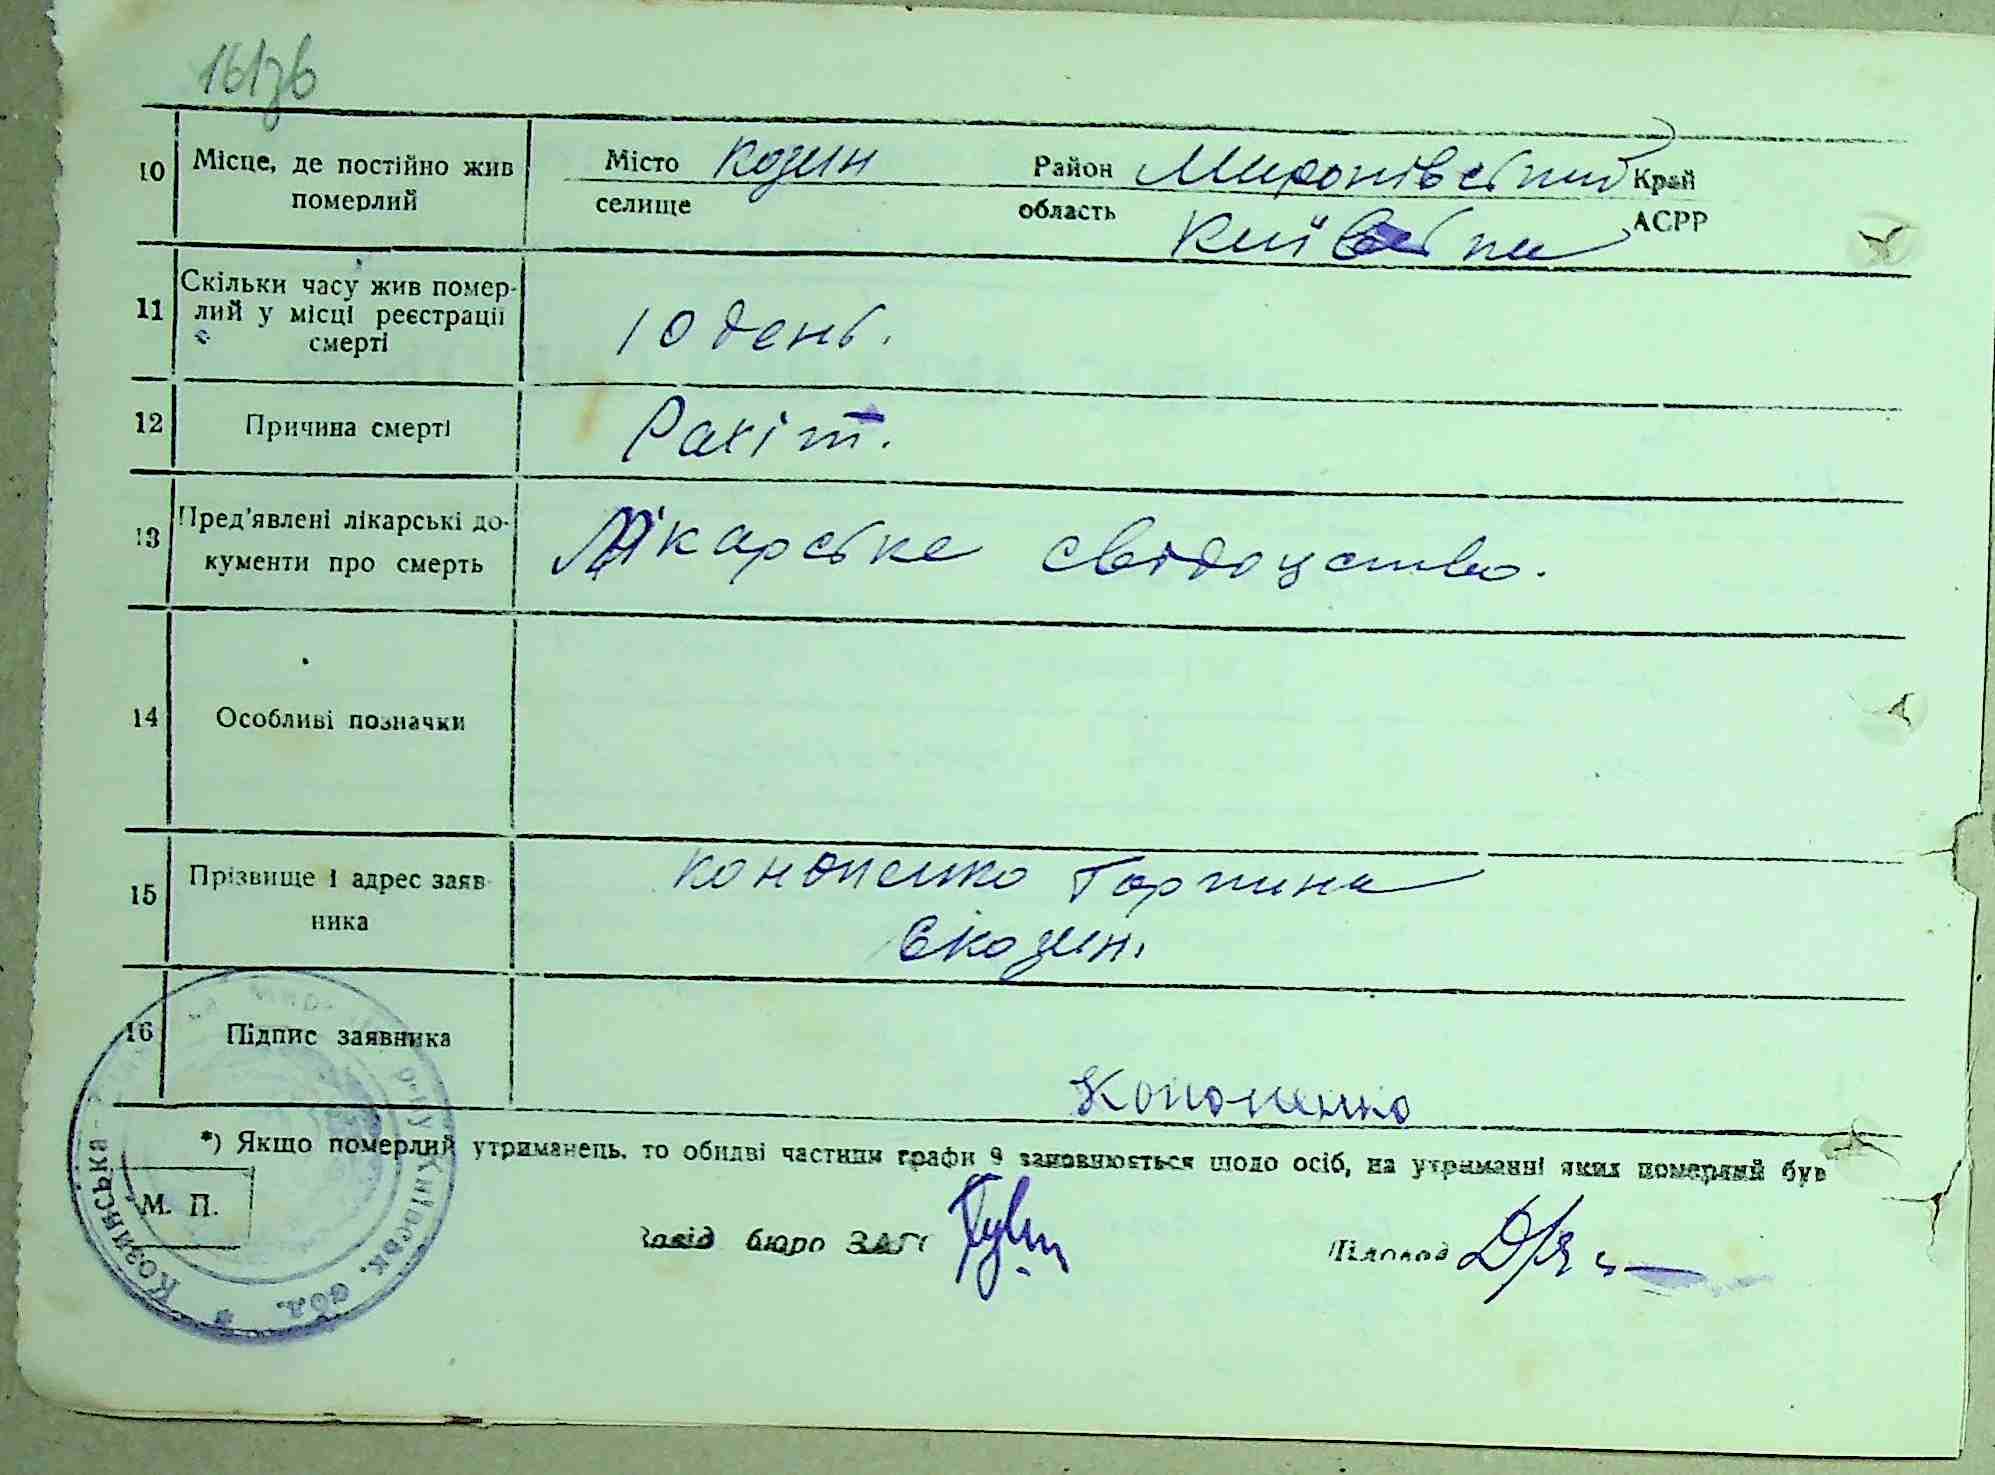 161зв
10 Місце, де постійно жив Місто Козин Район Миронівський Край
померлий селище область Київська АСРР
Скільки часу жив помер-
11 лий у місці реєстрації 10 день.
смерті
12 Причина смерті Рахіт.
13 Пред'явлені лікарські до- Лікарське свідоцтво.
кументи про смерть
14 Особливі позначки
15 Прізвище і адрес заяв- Кононенко Горпина
ника с Козин.
16 Підпис заявника
Кононенко
*) Якщо померлий утриманець, то обидві частини графи 9 заповнюється щодо осіб, на утриманні яких померлий був
М. П.
Завід бюро ЗАГС Діловод
Козинська Мир р-ну Київськ. обл.